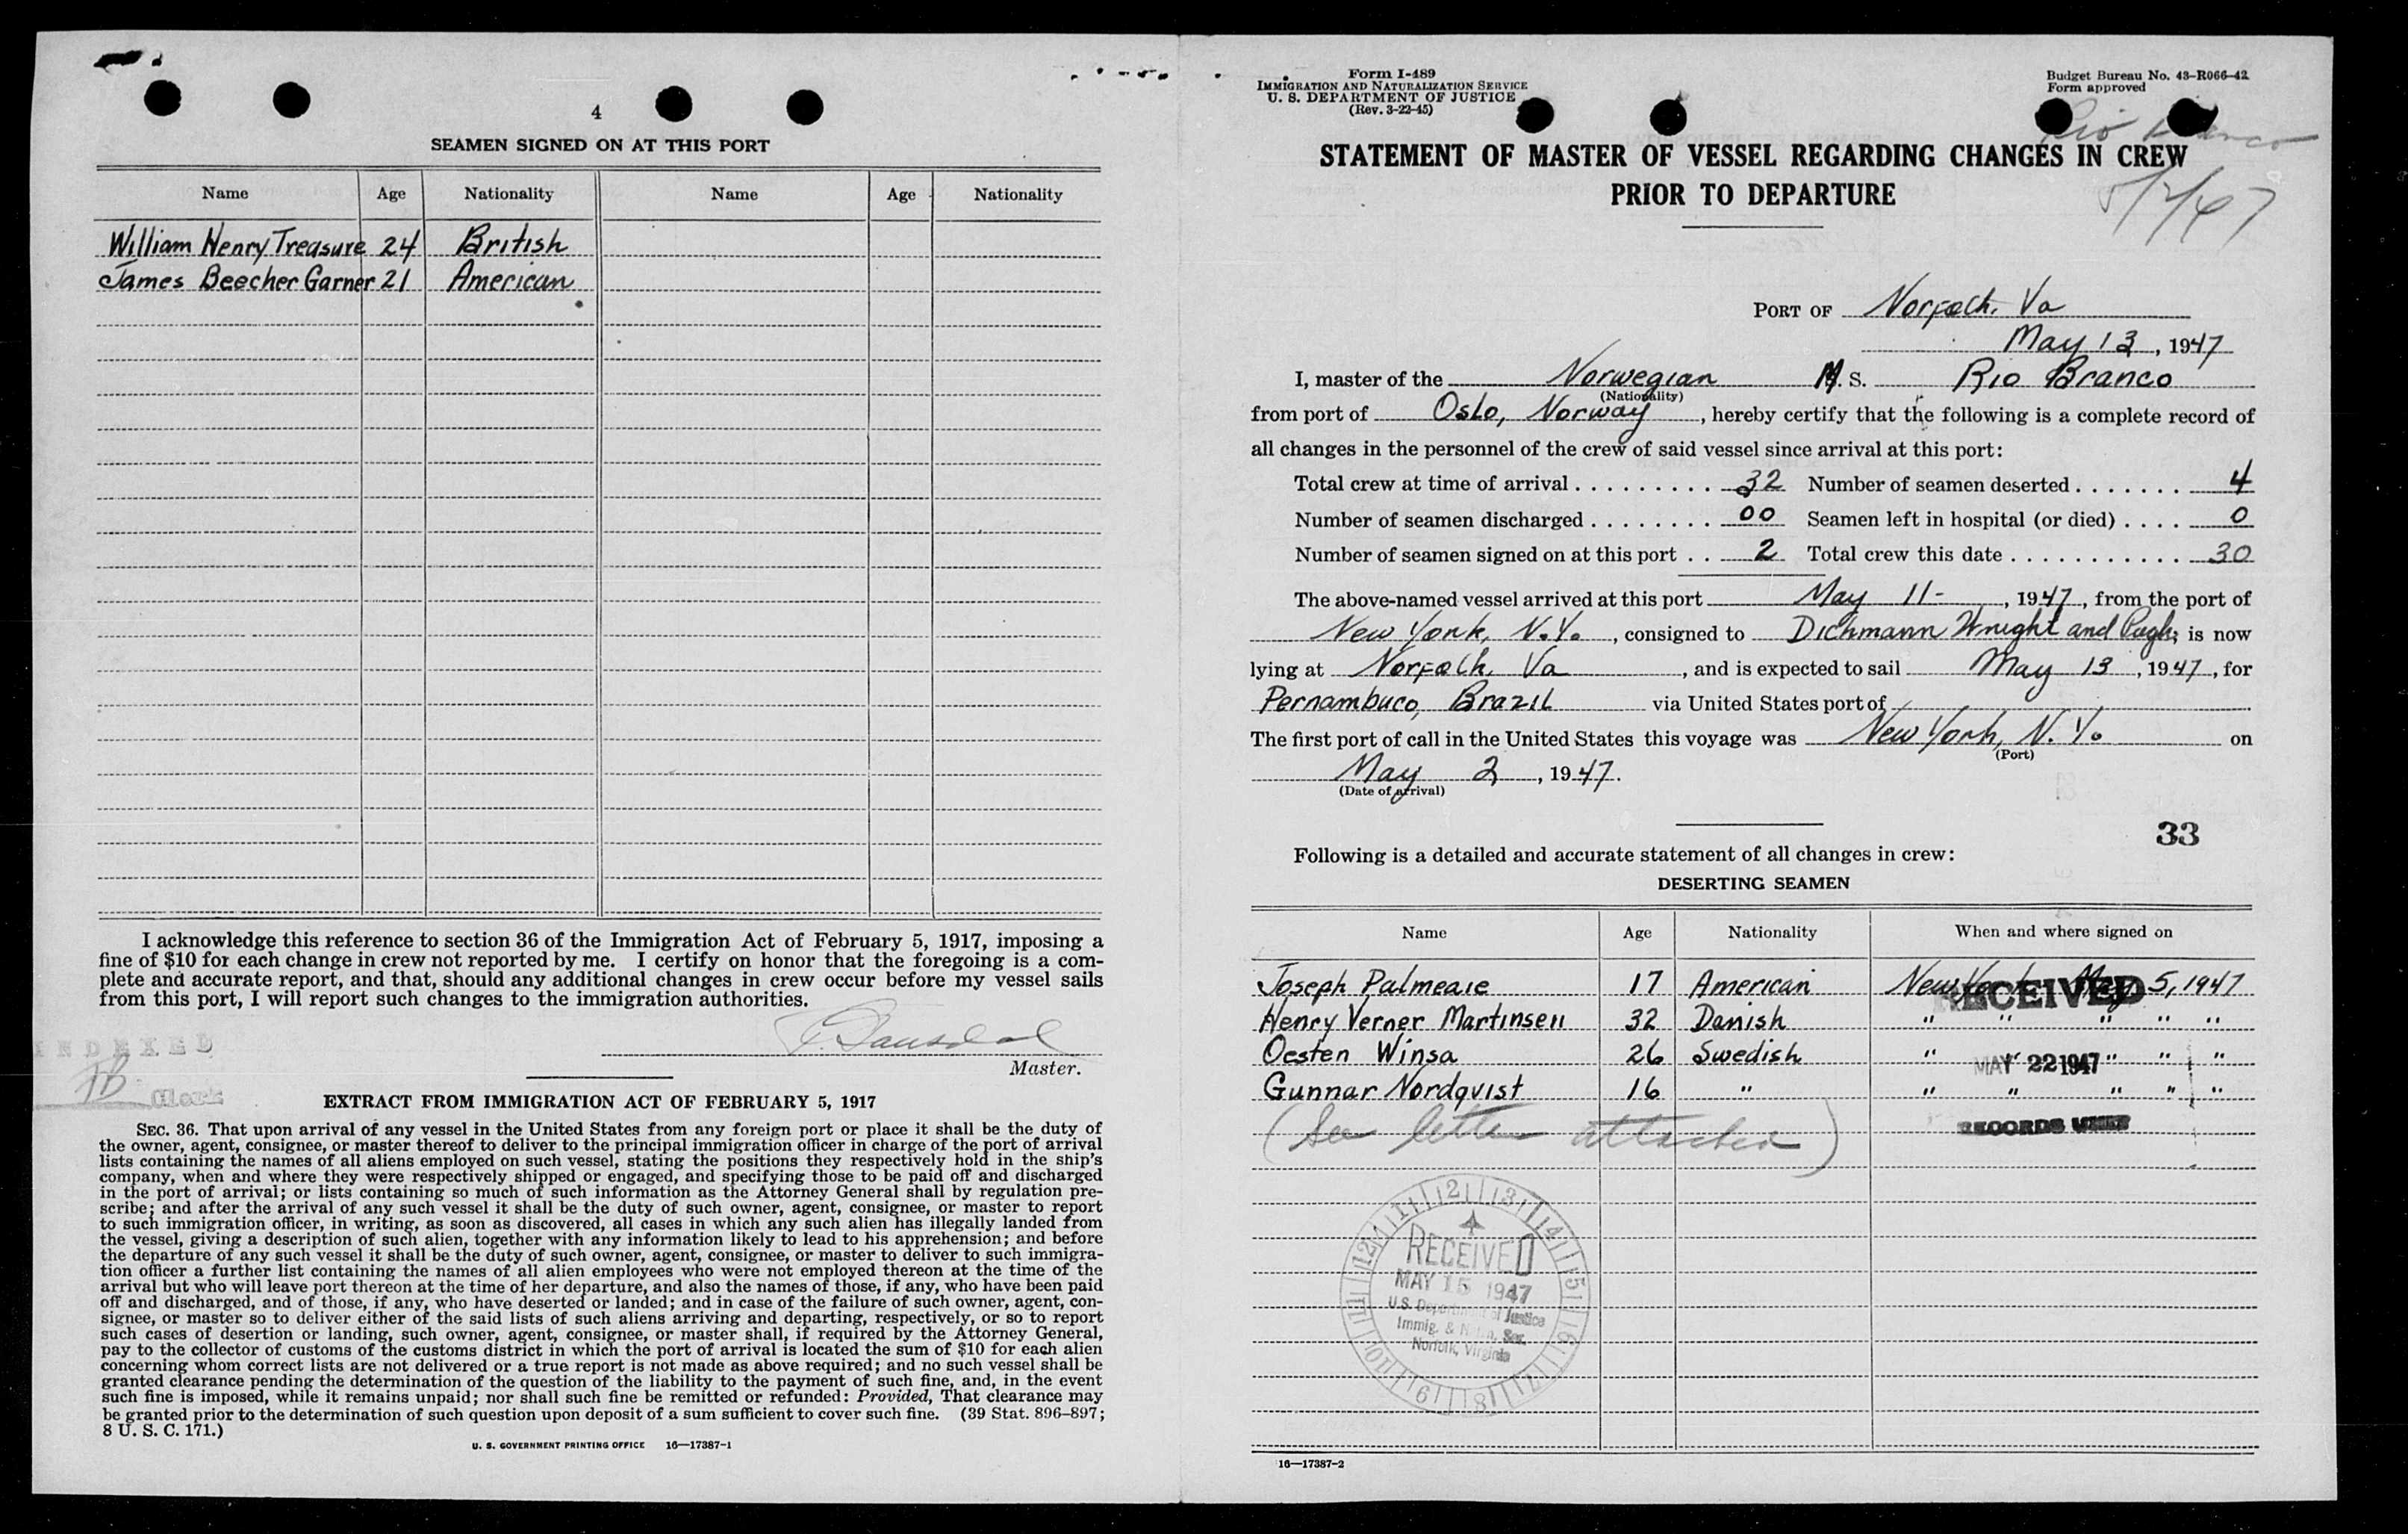 4
SEAMEN SIGNED ON AT THIS PORT
Name Age Nationality Name Age Nationality
William Henry Treasure 24 British
James Beecher Garner 21 American
I acknowledge this reference to section 36 of the Immigration Act of February 5, 1917, imposing a
fine of $10 for each change in crew not reported by me. I certify on honor that the foregoing is a com-
plete and accurate report, and that, should any additional changes in crew occur before my vessel sails
from this port, I will report such changes to the immigration authorities.
INDEXED
Master.
Clerk
EXTRACT FROM IMMIGRATION ACT OF FEBRUARY 5, 1917
SEC. 36. That upon arrival of any vessel in the United States from any foreign port or place it shall be the duty of
the owner, agent, consignee, or master thereof to deliver to the principal immigration officer in charge of the port of arrival
lists containing the names of all aliens employed on such vessel, stating the positions they respectively hold in the ship's
company, when and where they were respectively shipped or engaged, and specifying those to be paid off and discharged
in the port of arrival; or lists containing so much of such information as the Attorney General shall by regulation pre-
scribe; and after the arrival of any such vessel it shall be the duty of such owner, agent, consignee, or master to report
to such immigration officer, in writing, as soon as discovered, all cases in which any such alien has illegally landed from
the vessel, giving a description of such alien, together with any information likely to lead to his apprehension; and before
the departure of any such vessel it shall be the duty of such owner, agent, consignee, or master to deliver to such immigra-
tion officer a further list containing the names of all alien employees who were not employed thereon at the time of the
arrival but who will leave port thereon at the time of her departure, and also the names of those, if any, who have been paid
off and discharged, and of those, if any, who have deserted or landed; and in case of the failure of such owner, agent, con-
signee, or master so to deliver either of the said lists of such aliens arriving and departing, respectively, or so to report
such cases of desertion or landing, such owner, agent, consignee, or master shall, if required by the Attorney General,
pay to the collector of customs of the customs district in which the port of arrival is located the sum of $10 for each alien
concerning whom correct lists are not delivered or a true report is not made as above required; and no such vessel shall be
granted clearance pending the determination of the question of the liability to the payment of such fine, and, in the event
such fine is imposed, while it remains unpaid; nor shall such fine be remitted or refunded: Provided, That clearance may
be granted prior to the determination of such question upon deposit of a sum sufficient to cover such fine. (39 Stat. 896-897;
8 U. S. C. 171.)
U. S. GOVERNMENT PRINTING OFFICE 16—17387-1
Form I-489
IMMIGRATION AND NATURALIZATION SERVICE
U. S. DEPARTMENT OF JUSTICE
(Rev. 3-22-45)
Budget Bureau No. 43-R066-42
Form approved
Rio Branco
5/2/47
STATEMENT OF MASTER OF VESSEL REGARDING CHANGES IN CREW
PRIOR TO DEPARTURE
PORT OF Norfolk, Va
May 13, 1947
I, master of the Norwegian M. S. Rio Branco
(Nationality)
from port of Oslo, Norway, hereby certify that the following is a complete record of
all changes in the personnel of the crew of said vessel since arrival at this port:
Total crew at time of arrival 32 Number of seamen deserted 4
Number of seamen discharged 00 Seamen left in hospital (or died) 0
Number of seamen signed on at this port 2 Total crew this date 30
The above-named vessel arrived at this port May 11-, 1947, from the port of
New York, N.Y., consigned to Dichmann Wright and Pugh; is now
lying at Norfolk, Va, and is expected to sail May 13, 1947, for
Pernambuco, Brazil via United States port of
The first port of call in the United States this voyage was New York, N.Y. on
(Port)
May 2, 1947.
(Date of arrival)
33
Following is a detailed and accurate statement of all changes in crew:
DESERTING SEAMEN
Name Age Nationality When and where signed on
Joseph Palmeaie 17 American New York May 5, 1947
RECEIVED
Henry Verner Martinsen 32 Danish " " " " "
Oesten Winsa 26 Swedish " " " " "
MAY 22 1947
Gunnar Nordqvist 16 " " " " " "
(See letter attached)
RECORDS UNIT
12M 1 2 3 4 5 6 7 8 9 10 11
RECEIVED
MAY 15 1947
U.S. Department of Justice
Immig. & Natn. Ser.
Norfolk, Virginia
16—17387-2